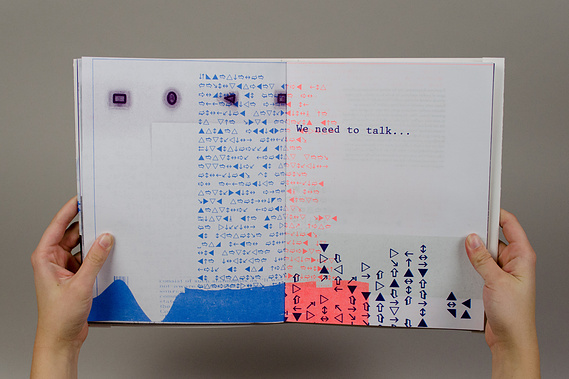 We need to talk...